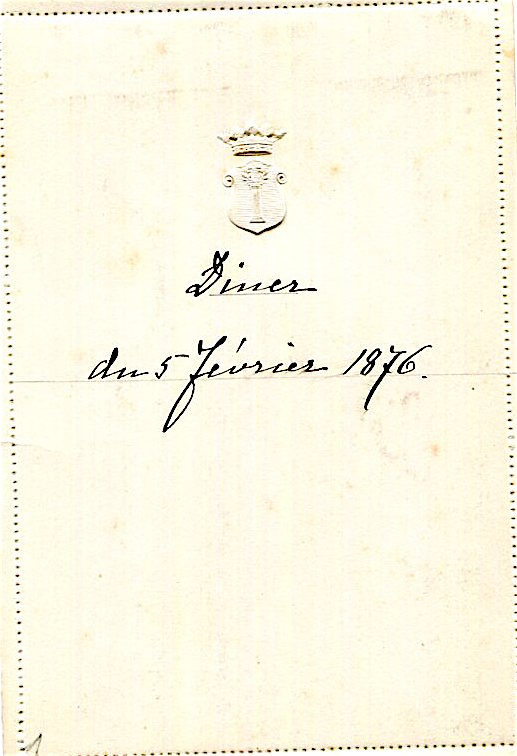 Diner
du 5 Février 1876.
1